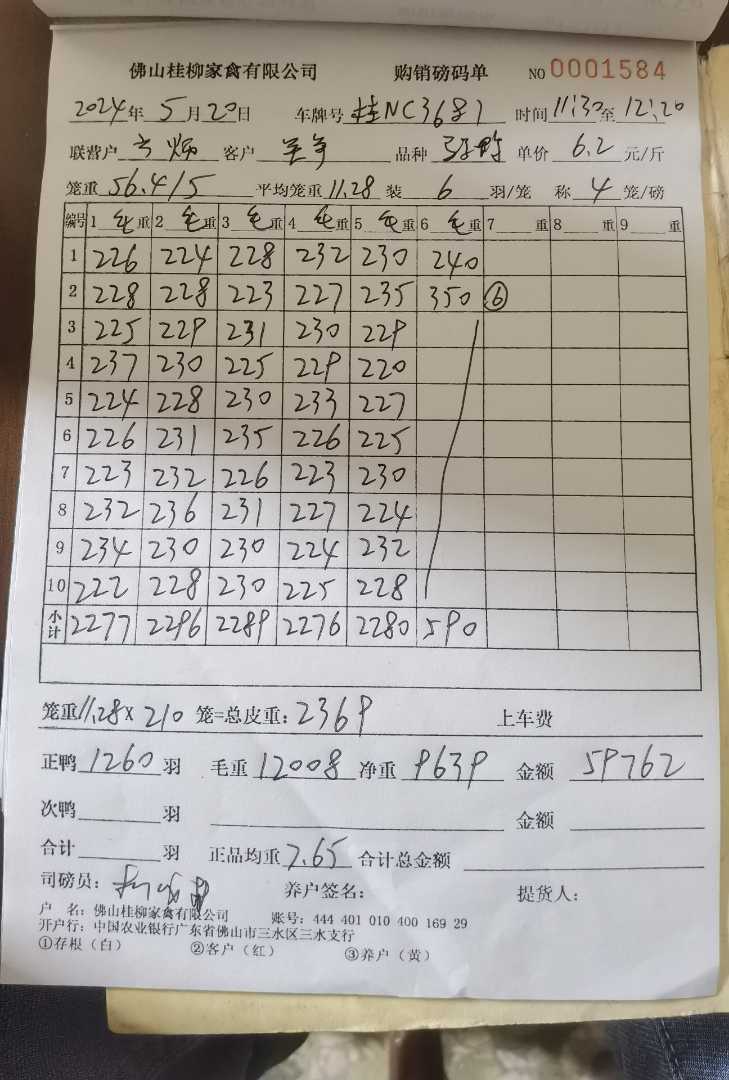 佛山桂柳家禽有限公司 购销磅码单 NO 0001584
2024年 5月20日 车牌号 桂NC3681 时间 11:30至 12:20
联营户 客户 品种 单价 6.2 元/斤
笼重 56.4/5 平均笼重 11.28 装 6 羽/笼 称 4 笼/磅
编号 1 毛重 2 毛重 3 毛重 4 毛重 5 毛重 6 毛重 7 重 8 重 9 重
1 226 224 228 232 230 240
2 228 228 223 227 235 350 ⑥
3 225 229 231 230 229
4 237 230 225 229 220
5 224 228 230 233 227
6 226 231 235 226 225
7 223 232 226 223 230
8 232 236 231 227 224
9 234 230 230 224 232
10 222 228 230 225 228
小计 2277 2296 2289 2276 2280 590
笼重 11.28 X 210 笼=总皮重: 2369 上车费
正鸭 1260 羽 毛重 12008 净重 9639 金额 59762
次鸭 羽 金额
合计 羽 正品均重 7.65 合计总金额
司磅员: 养户签名: 提货人:
户 名: 佛山桂柳家禽有限公司 账号: 444 401 010 400 169 29
开户行: 中国农业银行广东省佛山市三水区三水支行
①存根(白) ②客户(红) ③养户(黄)